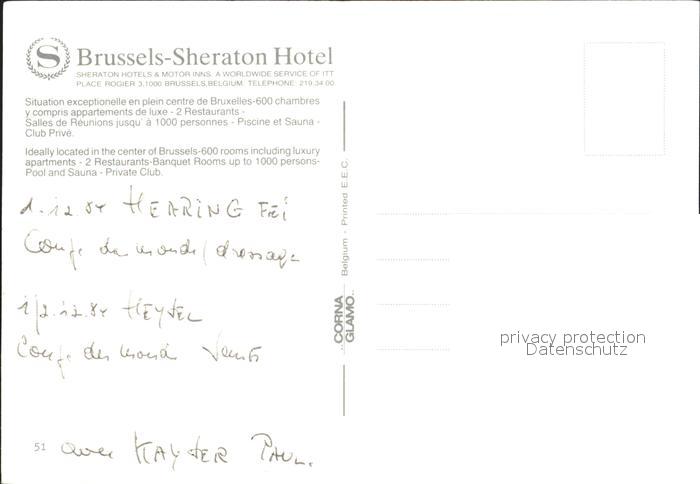 S
Brussels-Sheraton Hotel
SHERATON HOTELS & MOTOR INNS. A WORLDWIDE SERVICE OF ITT
PLACE ROGIER 3,1000 BRUSSELS,BELGIUM. TELEPHONE: 219.34.00
Situation exceptionelle en plein centre de Bruxelles-600 chambres
y compris appartements de luxe - 2 Restaurants -
Salles de Réunions jusqu' à 1000 personnes - Piscine et Sauna -
Club Privé.
Ideally located in the center of Brussels-600 rooms including luxury
apartments - 2 Restaurants-Banquet Rooms up to 1000 persons-
Pool and Sauna - Private Club.
1.12.84 HEARING FEI
Coupe du monde/dressage
1/2.12.84 HEYSEL
Coupe du monde
51 avec KAYSER PAUL.
Belgium - Printed E.E.C.
CORNA
GLAMO..
privacy protection
Datenschutz